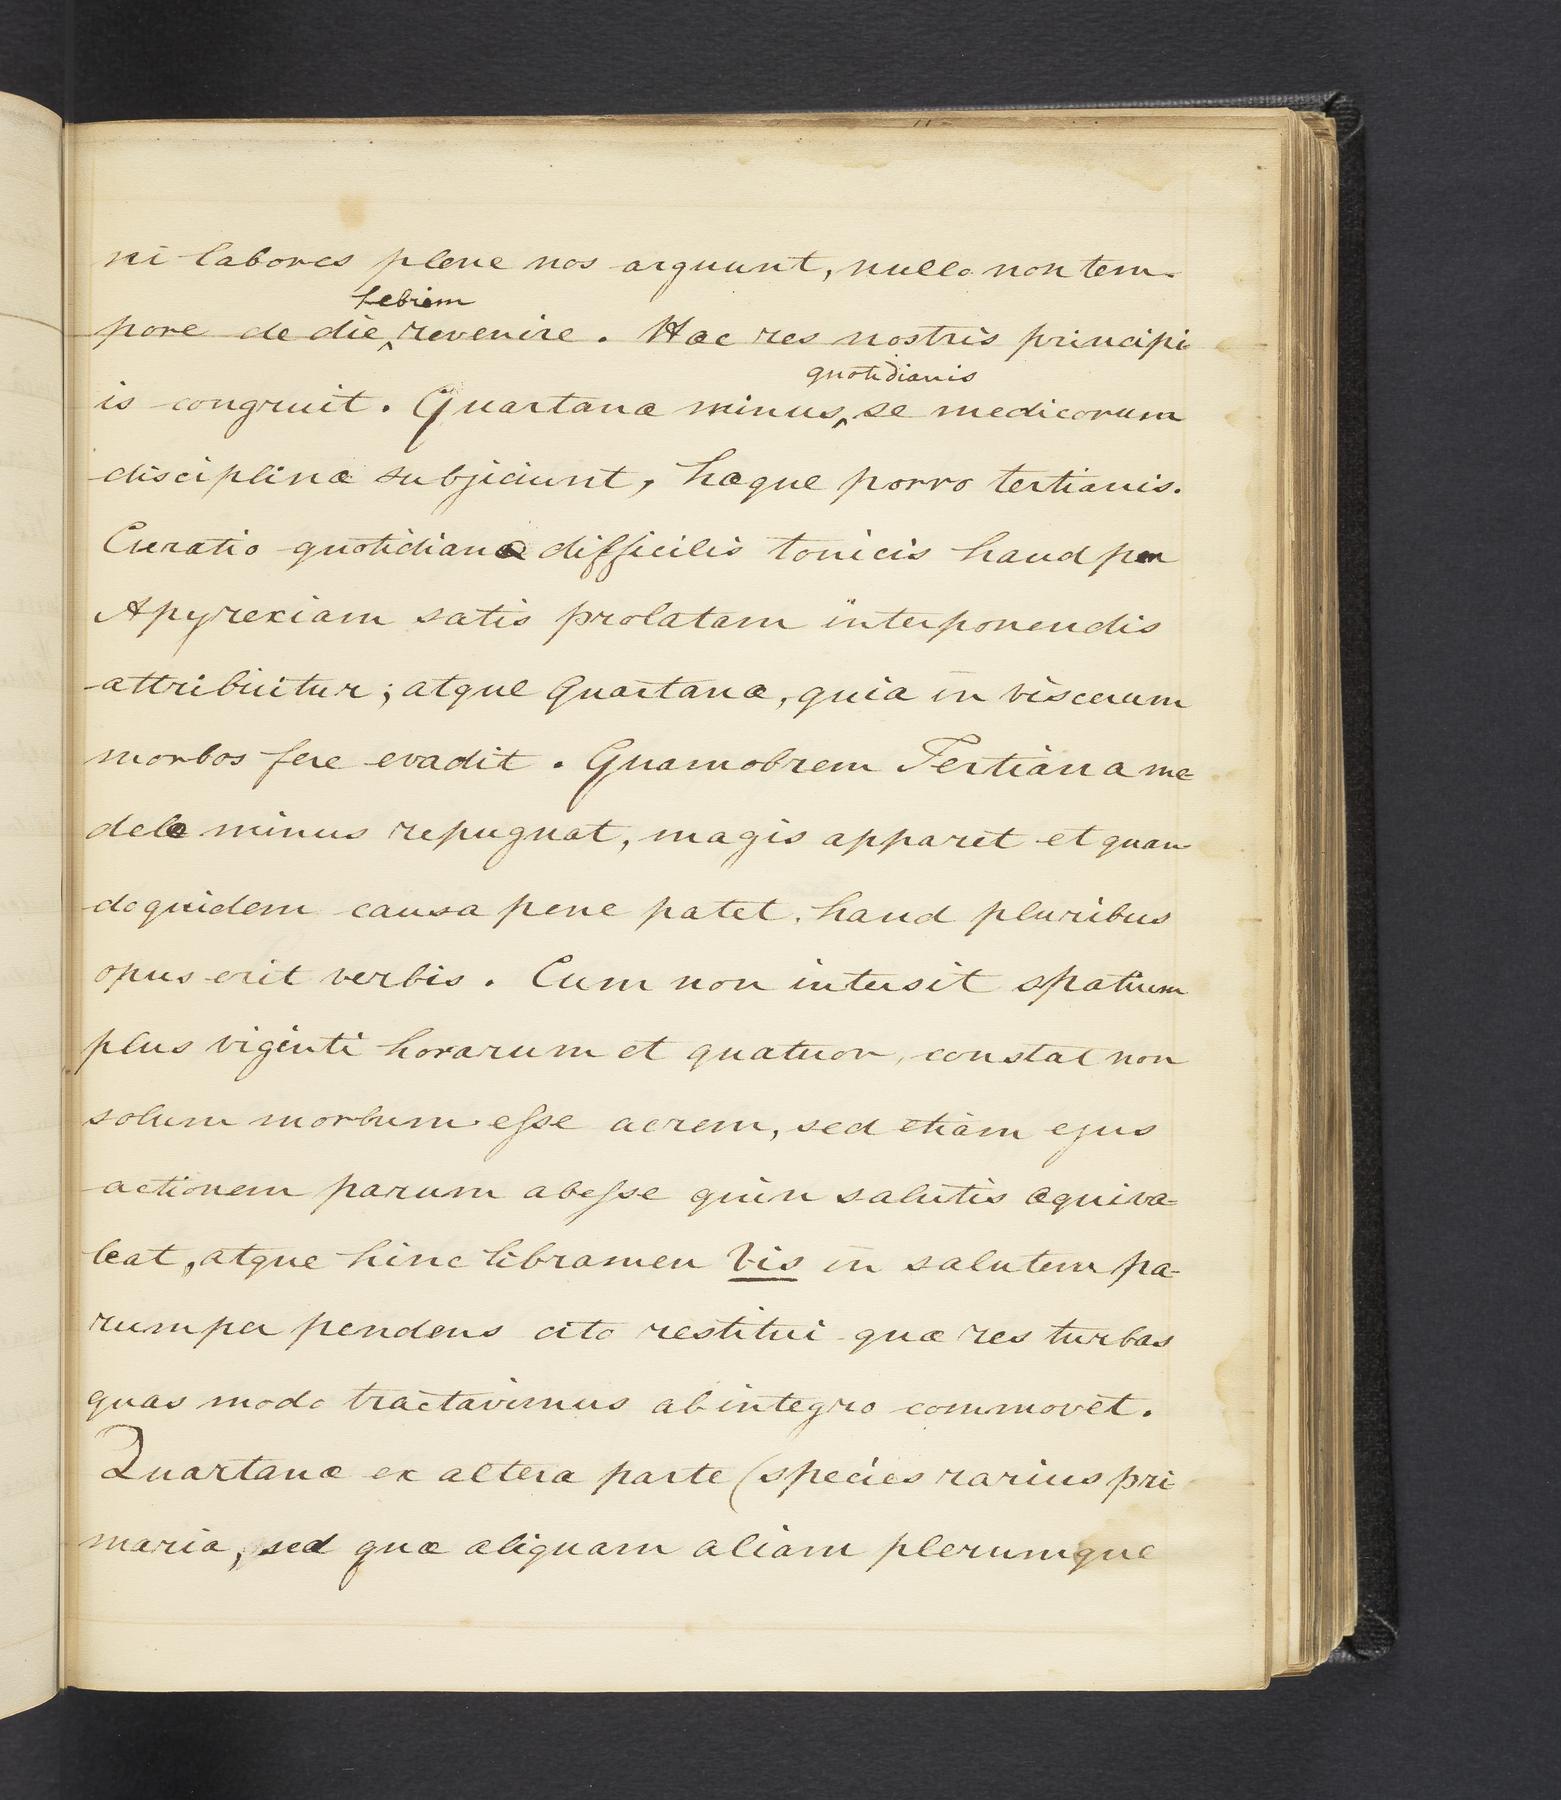 ni labores plene nos arguunt, nullo non tem-
febrem
pore de die ‸ revenire. Hæc res nostris principi
quotidianis
is congruit. Quartanæ minus ‸ se medicorum
disciplinæ subjiciunt, hæque porro tertianis.
Curatio quotidianæ difficilis tonicis haud per
Apyrexiam satis prolatam interponendis
attribuitur; atque Quartanæ, quia in viscerum
morbos fere evadit. Quamobrem Tertiana me
delæ minus repugnat, magis apparet et quan
doquidem causa pene patet, haud pluribus
opus erit verbis. Cum non intersit spatium
plus viginti horarum et quatuor, constat non
solum morbum esse acrem, sed etiam ejus
actionem parum abesse quin salutis æquiva-
leat, atque hinc libramen Vis in salutem pa-
rumper pendens cito restitui quæ res turbas
quas modo tractavimus ab integro commovet.
Quartanæ ex altera parte (species rarius pri
maria, sed quæ aliquam aliam plerumque